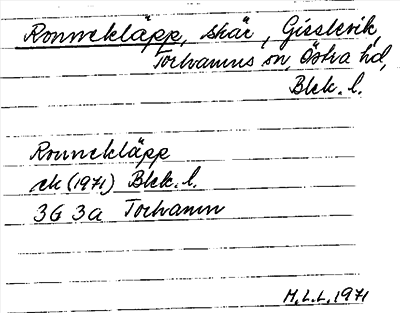 Ronnekläpp, skär, Gisslevik,
Torhamns sn, Östra hd,
Blek. l.
Ronnekläpp
ek (1971) Blek. l.
3G 3a Torhamn
M.L.L. 1971